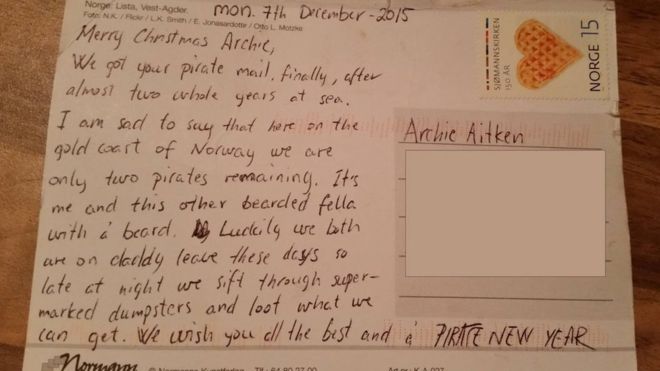 Norge: Lista, Vest-Agder.
Foto: N.K. / Flickr / L.K. Smith / E. Jonasardottir / Otto L. Motzke
mon. 7th December - 2015
Merry Christmas Archie,
We got your pirate mail, finally, after
almost two whole years at sea.
I am sad to say that here on the
gold coast of Norway we are
only two pirates remaining. It's
me and this other bearded fella
with a beard. Luckily we both
are on daddy leave these days so
late at night we sift through super-
marked dumpsters and loot what we
can get. We wish you all the best and a PIRATE NEW YEAR
SJØMANNSKIRKEN
150 ÅR
NORGE 15
Archie Aitken
Normann